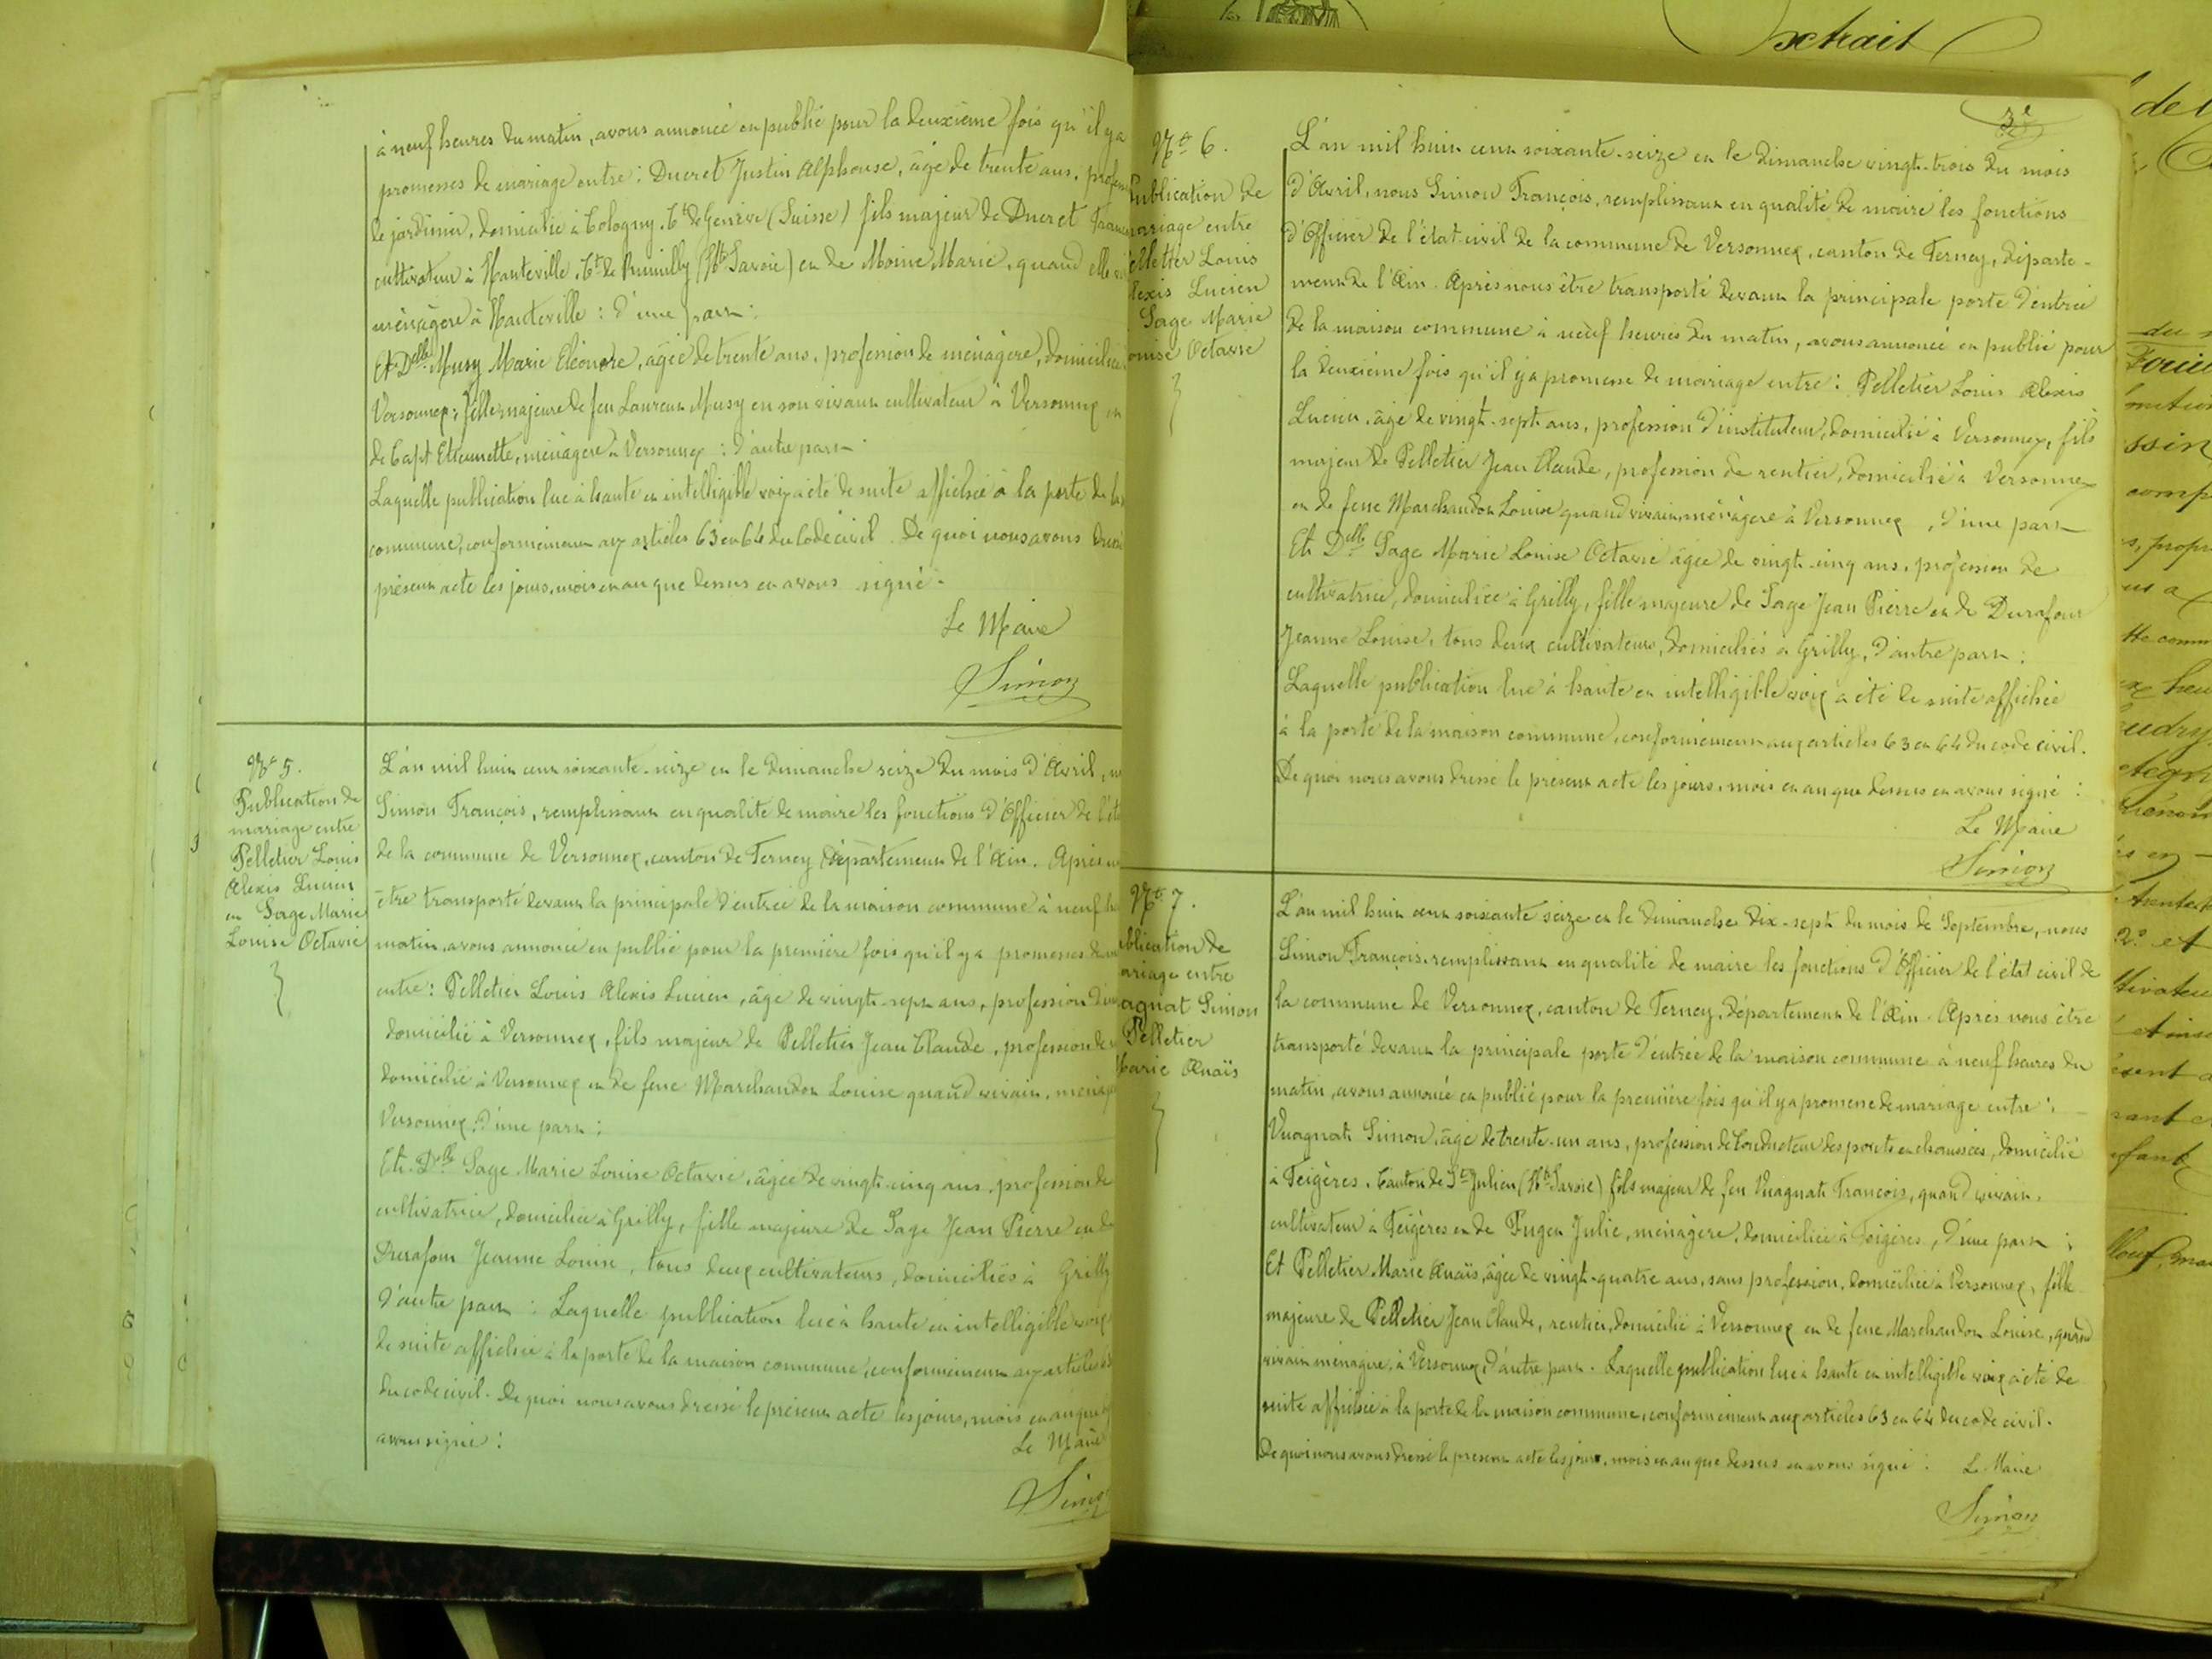 à neuf heures du matin, avons annoncé en publié pour la deuxième fois qu'il y a
promesses de mariage entre : Ducret Justin Alphonse, âgé de trente ans, profess
de jardinier, domicilié à Cologny, Ct de Genève (Suisse) fils majeur de Ducret Franc
cultivateur à Hauteville, Ct de Rumilly (Hte Savoie) et de Moine Marie, quand elle vi
ménagère à Hauteville : d'une part :
Et Delle Musy Marie Eléonore, âgée de trente ans, profession de ménagère, domiciliée
Versonnex, fille majeure de feu Laurent Musy en son vivant cultivateur à Versonnex et
de Capt Etiennette, ménagère à Versonnex : d'autre part
Laquelle publication lue à haute et intelligible voix a été de suite affichée à la porte de la
commune, conformément aux articles 63 et 64 du Code civil. De quoi nous avons dressé
présent acte les jours, mois et an que dessus et avons signé.
Le Maire
Simon
No 5.
Publication de
mariage entre
Pelletier Louis
Alexis Lucien
et Sage Marie
Louise Octavie
L'an mil huit cent soixante-seize et le dimanche seize du mois d'Avril, n
Simon François, remplissant en qualité de maire les fonctions d'Officier de l'éta
de la commune de Versonnex, canton de Ferney, département de l'Ain. Après n
être transporté devant la principale d'entrée de la maison commune à neuf h
matin, avons annoncé en publié pour la première fois qu'il y a promesses de m
entre : Pelletier Louis Alexis Lucien, âgé de vingt-sept ans, profession d'in
domicilié à Versonnex, fils majeur de Pelletier Jean Claude, profession de r
domicilié à Versonnex et de feue Marchandon Louise quand vivait, ménag
Versonnex, d'une part :
Et Delle Sage Marie Louise Octavie, âgée de vingt-cinq ans, profession de
cultivatrice, domiciliée à Grilly, fille majeure de Sage Jean Pierre et de
Durafour Jeanne Louise, tous deux cultivateurs, domiciliés à Grilly
d'autre part : Laquelle publication lue à haute et intelligible voix
de suite affichée à la porte de la maison commune, conformément aux articles 63
du code civil. De quoi nous avons dressé le présent acte les jours, mois et an que
avons signé :
Le Maire
Simon
3e
No 6.
Publication de
mariage entre
elletier Louis
lexis Lucien
Sage Marie
ouise Octavie
L'an mil huit cent soixante-seize et le dimanche vingt-trois du mois
d'Avril, nous Simon François, remplissant en qualité de maire les fonctions
d'Officier de l'état-civil de la commune de Versonnex, canton de Ferney, départe-
ment de l'Ain. Après nous être transporté devant la principale porte d'entrée
de la maison commune à neuf heures du matin, avons annoncé en publié pour
la deuxième fois qu'il y a promesse de mariage entre : Pelletier Louis Alexis
Lucien, âgé de vingt-sept ans, profession d'instituteur, domicilié à Versonnex, fils
majeur de Pelletier Jean Claude, profession de rentier, domicilié à Versonnex
et de feue Marchandon Louise quand vivait ménagère à Versonnex, d'une part
Et Delle Sage Marie Louise Octavie âgée de vingt-cinq ans, profession de
cultivatrice, domiciliée à Grilly, fille majeure de Sage Jean Pierre et de Durafour
Jeanne Louise, tous deux cultivateurs, domiciliés à Grilly, d'autre part :
Laquelle publication lue à haute et intelligible voix a été de suite affichée
à la porte de la maison commune, conformément aux articles 63 et 64 du code civil.
De quoi nous avons dressé le présent acte les jours, mois et an que dessus et avons signé :
Le Maire
Simon
No 7.
ublication de
ariage entre
agnat Simon
Pelletier
Marie Anaïs
L'an mil huit cent soixante seize et le dimanche dix-sept du mois de Septembre, nous
Simon François, remplissant en qualité de maire les fonctions d'Officier de l'état civil de
la commune de Versonnex, canton de Ferney, département de l'Ain. Après nous être
transporté devant la principale porte d'entrée de la maison commune à neuf heures du
matin, avons annoncé en publié pour la première fois qu'il y a promesse de mariage entre :
Vuagnat Simon, âgé de trente-un ans, profession de Conducteur des ponts et chaussées, domicilié
à Feigères, Canton de St Julien (Hte Savoie) fils majeur de feu Vuagnat François, quand vivait,
cultivateur à Feigères et de Julie, ménagère, domiciliée à Feigères, d'une part :
Et Pelletier Marie Anaïs, âgée de vingt-quatre ans, sans profession, domiciliée à Versonnex, fille
majeure de Pelletier Jean Claude, rentier, domicilié à Versonnex et de feue Marchandon Louise, quand
vivait ménagère, à Versonnex, d'autre part. Laquelle publication lue à haute et intelligible voix a été de
suite affichée à la porte de la maison commune, conformément aux articles 63 et 64 du code civil.
De quoi nous avons dressé le présent acte les jours, mois et an que dessus et avons signé : Le Maire
Simon
Extrait